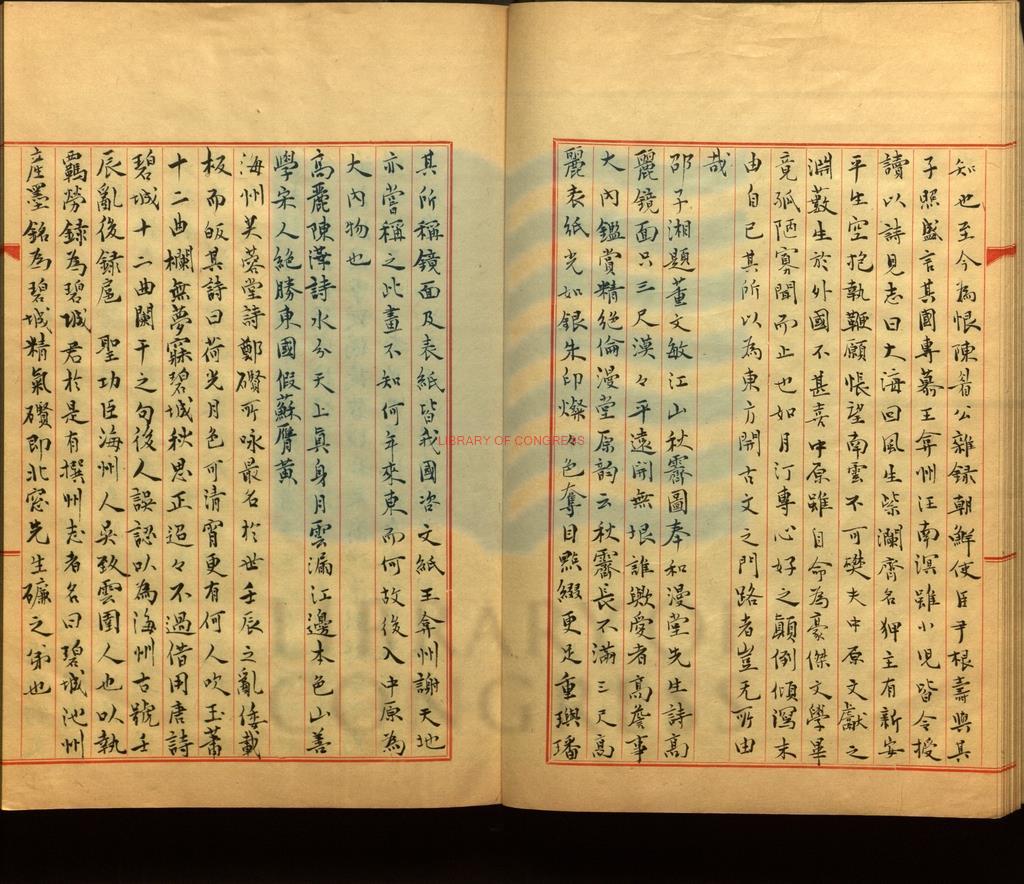 知也至今爲恨陳眉公雜録朝鮮使臣尹根壽與其
子照盛言其國專慕王弇州汪南溟雖小児皆令授
讀以詩見志曰大海回風生紫瀾齊名狎主有新安
平生空抱執鞭願悵望南雲不可攀夫中原文獻之
淵藪生於外國不甚喜中原雖自命爲豪傑文學畢
竟孤陋寡聞而止也如月汀專心好之顛倒傾瀉末
由自已其所以為東方開古文之門路者豈无所由
哉
邵子湘題董文敏江山秋霽圖奉和漫堂先生詩高
麗鏡面只三尺漠々平遠開無垠誰歟愛者高詹事
大內鑑賞精絶倫漫堂原韵云秋霽長不滿三尺高
麗表紙光如銀朱印燦々色奪目點綴更足重璵璠
其所稱鏡面及表紙皆我國咨文紙王弇州謝天地
亦嘗稱之此畫不知何年來東而何故後入中原為
大內物也
高麗陳澕詩水分天上真身月雲漏江邊本色山善
學宋人絶勝東國假蘇贋黃
海州芙蓉堂詩鄭礥所咏最名於世壬辰之亂倭載
板而皈其詩曰荷光月色可清宵更有何人吹玉蕭
十二曲欄無夢寐碧城秋思正迢々不過借用唐詩
碧城十二曲闌干之句後人誤認以為海州古號壬
辰亂後録扈 聖功臣海州人吳致雲圉人也以執
羈勞録為碧城君於是有撰州志者名曰碧城池州
産墨銘為碧城精氣礥即北窓先生䃢之弟也
LIBRARY OF CONGRESS